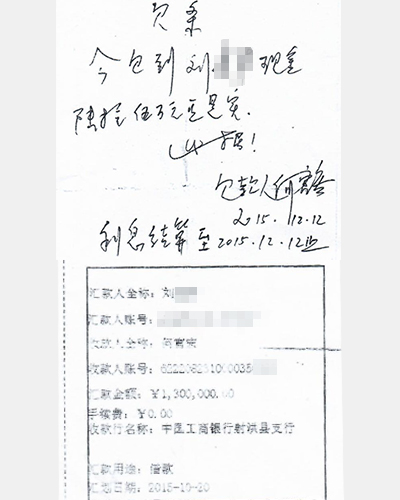 欠条
今欠到刘 现金
陆拾伍万元正是实.
此据!
欠款人何富
2015.12.12
利息结算至2015.12.12止
汇款人全称:刘
汇款人账号:
收款人全称:何富
收款人账号:622208231000035
汇款金额:¥1,300,000.00
手续费:¥0.00
收款行名称:中国工商银行射洪县支行
汇款用途:借款
汇款日期:2015-10-20